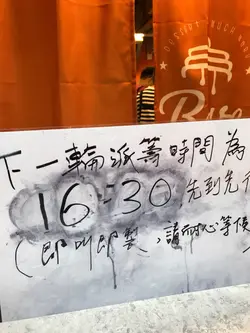 DESSERT
下一輪派籌時間為
16:30 先到先
(即叫即製,請耐心等候